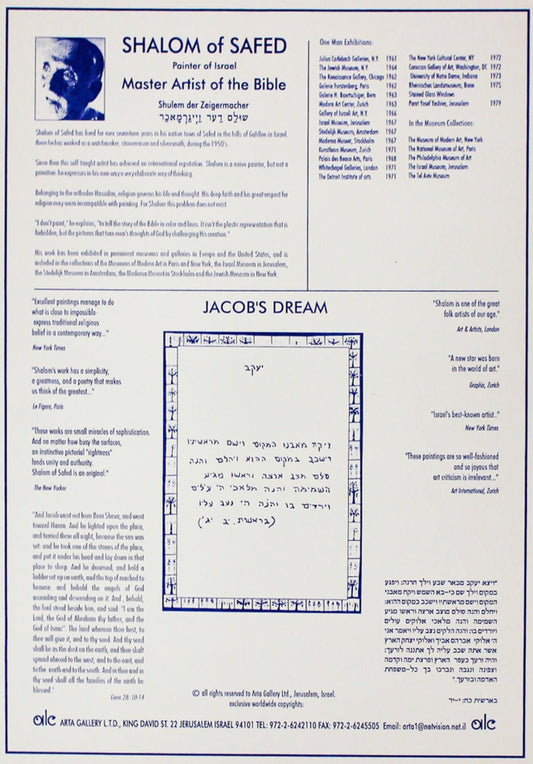 SHALOM of SAFED
Painter of Israel
Master Artist of the Bible
Shulem der Zeigermacher
שולם דער זייגערמאכער
Shalom of Safed has lived for over seventeen years in his native town of Safed in the hills of Galilee in Israel
there he has worked as a watchmaker, stonemason and silversmith, during the 1950's.
Since then this self taught artist has achieved an international reputation. Shalom is a naive painter, but not a
primitive: he expresses in his own way a very elaborate way of thinking.
Belonging to the orthodox Hassidim, religion governs his life and thought. His deep faith and his great respect for
religion may seem incompatible with painting. For Shalom this problem does not exist.
"I don't paint," he explains, "to tell the story of the Bible in color and lines. It isn't the plastic representation that is
forbidden, but the pictures that turn men's thoughts of God by challenging His creation."
His work has been exhibited in prominent museums and galleries in Europe and the United States, and is
included in the collections of the Museums of Modern Art in Paris and New York, the Israel Museum in Jerusalem,
the Stedelijk Museum in Amsterdam, the Moderna Museet in Stockholm and the Jewish Museum in New York.
One Man Exhibitions:
Julius Carlebach Galleries, N.Y. 1961
The Jewish Museum, N.Y. 1964
The Renaissance Gallery, Chicago 1962
Galerie Furstenberg, Paris 1962
Galerie H. Baertschiger, Bern 1963
Modern Art Center, Zurich 1963
Gallery of Israeli Art, N.Y. 1966
Israel Museum, Jerusalem 1967
Stedelijk Museum, Amsterdam 1967
Moderna Museet, Stockholm 1967
Kunsthaus Museum, Zurich 1971
Palais des Beaux Arts, Paris 1968
Whitechapel Galleries, London 1971
The Detroit Institute of arts 1971
The New York Cultural Center, NY 1972
Corcoran Gallery of Art, Washington, DC 1972
University of Notre Dame, Indiana 1973
Rheinisches Landesmuseum, Bonn 1975
Stained Glass Windows
Porat Yosef Yeshive, Jerusalem 1979
In the Museum Collections:
The Museum of Modern Art, New York
The National Museum of Art, Paris
The Philadelphia Museum of Art
The Israel Museum, Jerusalem
The Tel Aviv Museum
JACOB'S DREAM
"Excellent paintings manage to do
what is close to impossible-
express traditional religious
belief in a contemporary way..."
New York Times
"Shalom's work has a simplicity,
a greatness, and a poetry that makes
us think of the greatest..."
Le Figaro, Paris
"These works are small miracles of sophistication.
And no matter how busy the surfaces,
an instinctive pictorial "rightness"
lends unity and authority.
Shalom of Safed is an original."
The New Yorker
"And Jacob went out from Beer Sheva, and went
toward Haran. And he lighted upon the place,
and tarried there all night, because the sun was
set: and he took one of the stones of the place,
and put it under his head and lay down in that
place to sleep. And he dreamed, and behold a
ladder set up on earth, and the top of it reached to
heaven: and behold the angels of God
ascending and descending on it. And , behold,
the lord stood beside him, and said: "I am the
Lord, the God of Abraham thy father, and the
God of Isaac" The land whereon thou liest, to
thee will give it, and to thy seed. And thy seed
shall be as the dust on the earth, and then shalt
spread abroad to the west, and to the east, and
to the north and to the south. And in thee and in
thy seed shall all the families of the earth be
blessed."
Gene. 28; 10-14
יעקב
ויקח מאבני המקום וישם מראשתיו
וישכב במקום ההוא ויחלם והנה
סלם מצב ארצה וראשו מגיע
השמימה והנה מלאכי ה' עולים
וירדים בו והנה ה' נצב עליו
"Shalom is one of the great
folk artists of our age."
Art & Artists, London
"A new star was born
in the world of art."
Graphis, Zurich
"Israel's best-known artist.."
New York Times
"These paintings are so well-fashioned
and so joyous that
art criticism is irrelevant..."
Art International, Zurich
"ויצא יעקב מבאר שבע וילך חרנה: ויפגע
במקום וילך שם כי-בא השמש ויקח מאבני
המקום וישם מראשתיו וישכב במקום ההוא:
ויחלם והנה סולם מוצב ארצה וראשו מגיע
השמימה והנה מלאכי אלוקים עולים
ויורדים בו: והנה הלוקים נצב עליו ויאמר אני
ה' אלוקי אברהם אביך ואלוקי יצחק הארץ
אשר אתה שכב עליה לך אתננה לזרעך:
והיה זרעך כעפר הארץ ופרצת ימה וקדמה
וצפונה ונגבה ונברכו בך כל-משפחת
האדמה ובזרעך."
בארשית כח: י-יד
© all rights reserved to Arta Gallery Ltd., Jerusalem, Israel.
exclusive worldwide copyrights:
ARTA GALLERY L.T.D., KING DAVID ST. 22 JERUSALEM ISRAEL 94101 TEL: 972-2-6242110 FAX: 972-2-6245505 Email: arta1@netvision.net.il